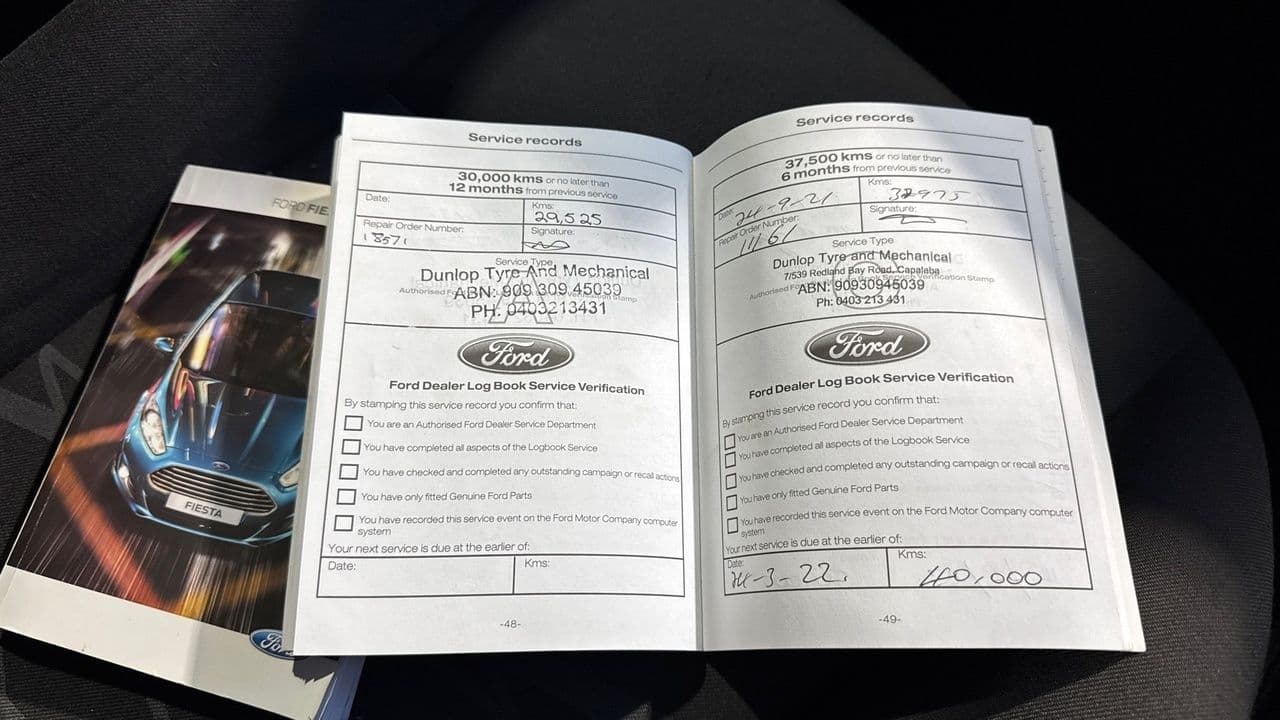 FORD FIE
FIESTA
Ford
Service records
30,000 kms or no later than
12 months from previous service
Date:
Kms:
29,525
Repair Order Number:
18571
Signature:
Service Type
Dunlop Tyre And Mechanical
ABN: 909 309 45039
PH: 0403213431
Ford
Ford Dealer Log Book Service Verification
By stamping this service record you confirm that:
You are an Authorised Ford Dealer Service Department
You have completed all aspects of the Logbook Service
You have checked and completed any outstanding campaign or recall actions
You have only fitted Genuine Ford Parts
You have recorded this service event on the Ford Motor Company computer
system
Your next service is due at the earlier of:
Date:
Kms:
-48-
Service records
37,500 kms or no later than
6 months from previous service
Date:
24-9-21
Kms:
Repair Order Number:
11161
Signature:
Service Type
Dunlop Tyre and Mechanical
7/539 Redland Bay Road, Capalaba
ABN: 90930945039
Ph: 0403 213 431
Ford
Ford Dealer Log Book Service Verification
By stamping this service record you confirm that:
You are an Authorised Ford Dealer Service Department
You have completed all aspects of the Logbook Service
You have checked and completed any outstanding campaign or recall actions
You have only fitted Genuine Ford Parts
You have recorded this service event on the Ford Motor Company computer
system
Your next service is due at the earlier of:
Date:
24-3-22.
Kms:
40,000
-49-